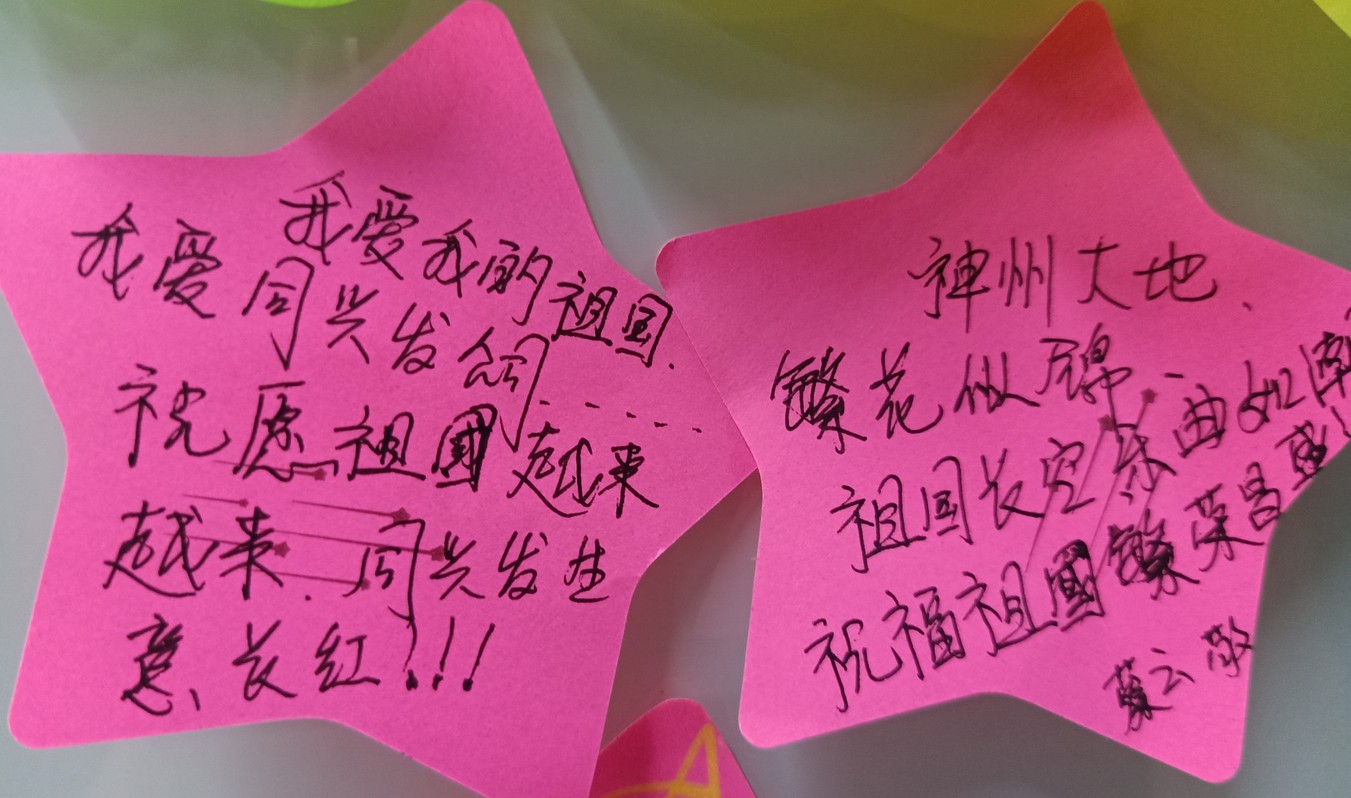 我爱我的祖国.
我爱同兴发
祝愿祖國越来
越来.同兴发生
意长红!!!
神州大地、
繁花似锦
祖国长空乐曲如潮
祝福祖國繁荣昌盛!